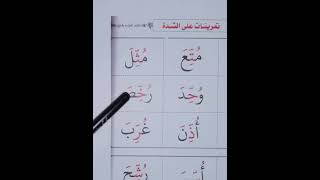 تمرينات على الشدة
مُتِّعَ مُثِّلَ
وُحِّدَ رُخِّصَ
أُذِّنَ غُرِّبَ
رُشِّحَ